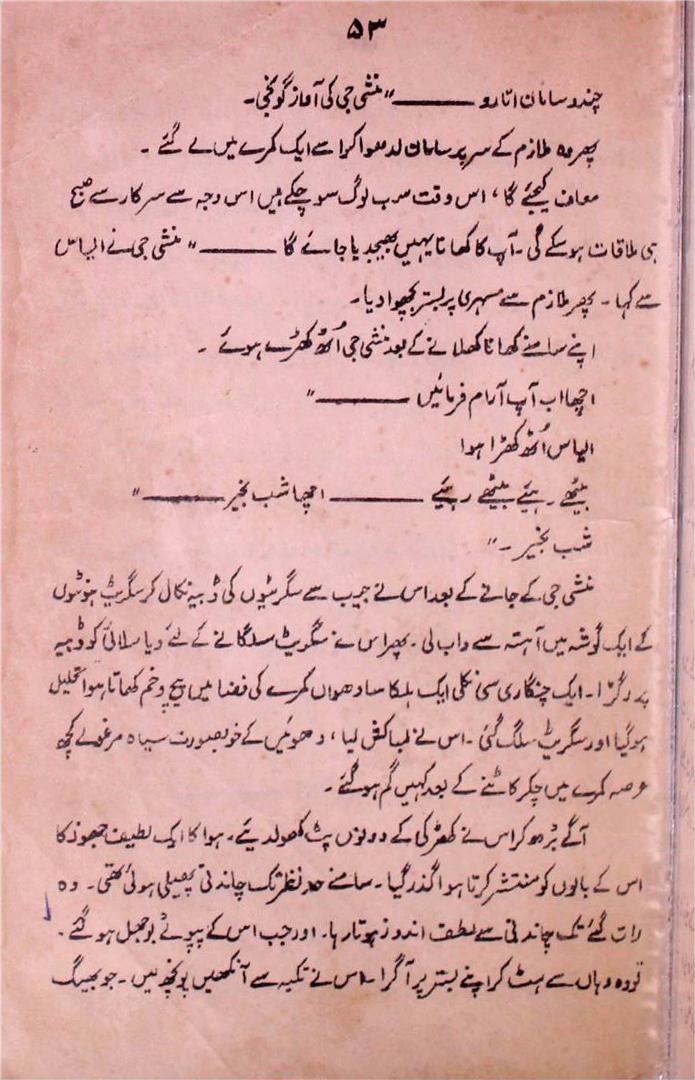 ۵۳
چندو سامان اتارو ——— " منشی جی کی آواز گونجی۔
پھر وہ ملازم کے سر پر سامان لدھوا کر اسے ایک کمرے میں لے گئے ۔
معاف کیجئے گا، اس وقت سب لوگ سو چکے ہیں اس وجہ سے سرکار سے صبح
ہی ملاقات ہو سکے گی ۔ آپ کا کھانا یہیں بھیجدیا جائے گا ——— " منشی جی نے الیاس
سے کہا ۔ پھر ملازم سے مسہری پر بستر بچھوا دیا۔
اپنے سامنے کھانا کھلانے کے بعد منشی جی اُٹھ کھڑے ہوئے ۔
اچھا اب آپ آرام فرمائیں ——— "
الیاس اُٹھ کھڑا ہوا
بیٹھے رہیئے بیٹھے رہیئے ——— اچھا شب بخیر ——— "
شب بخیر ۔ "
منشی جی کے جانے کے بعد اس نے جیب سے سگریٹوں کی ڈبیہ نکال کر سگریٹ ہونٹوں
کے ایک گوشہ میں آہستہ سے داب لی ۔ پھر اس نے سگریٹ سلگانے کے لئے دیا سلائی کو ڈبیہ
پر رگڑا ۔ ایک چنگاری سی نکلی ایک ہلکا سا دھواں کمرے کی فضا میں پیچ و خم کھاتا ہوا تحلیل
ہو گیا اور سگریٹ سلگ گئی ۔ اس نے لمبا کش لیا ، دھوئیں کے خوبصورت سیاہ مرغولے کچھ
عرصہ کمرے میں چکر کاٹنے کے بعد کہیں گم ہو گئے ۔
آگے بڑھ کر اس نے کھڑکی کے دونوں پٹ کھولدیئے ۔ ہوا کا ایک لطیف جھونکا
اس کے بالوں کو منتشر کرتا ہوا گذر گیا ۔ سامنے حدِ نظر تک چاندنی پھیلی ہوئی تھی ۔ وہ
رات گئے تک چاندنی سے لطف اندوز ہوتا رہا ۔ اور جب اس کے پپوٹے بوجھل ہو گئے ۔
تو وہ وہاں سے ہٹ کر اپنے بستر پر آگرا ۔ اس نے تکیہ سے آنکھیں پونچھ لیں ۔ جو بھیگ